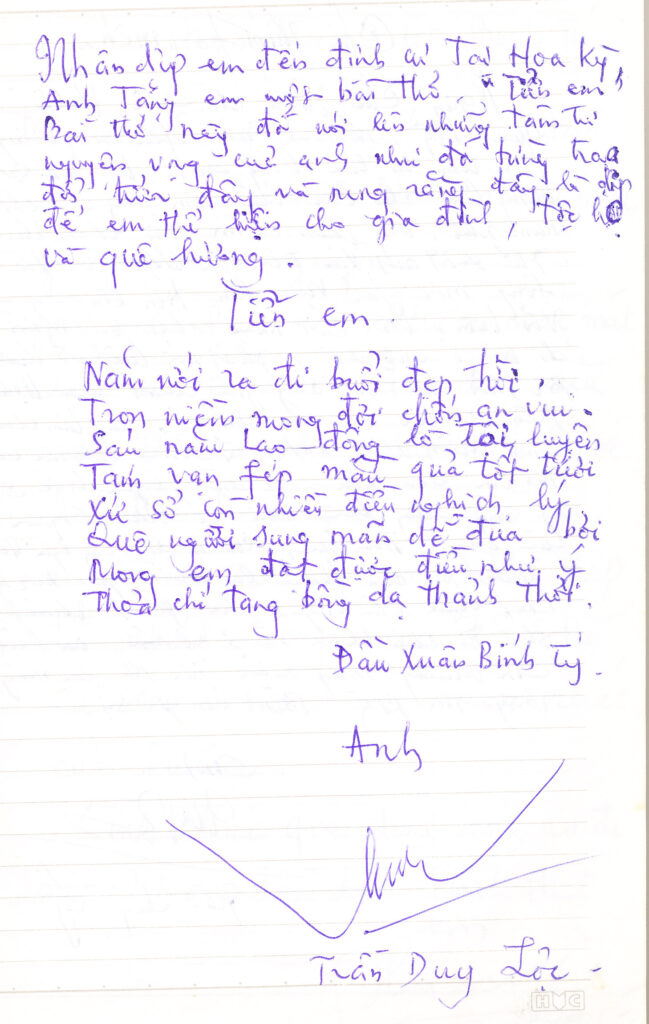 Nhân dịp em đến định cư Tại Hoa Kỳ,
Anh Tặng em một bài thơ, "Tiễn em"
Bài thơ này đã nói lên những tâm tư
nguyện vọng của anh như đã từng trao
đổi trước đây và mong rằng đây là dịp
để em thể hiện cho gia đình, tộc họ
và quê hương.
Tiễn em.
Năm mới ra đi buổi đẹp trời.
Trọn niềm mong đợi chốn an vui.
Sáu năm Lao động lò luyện
Tám vạn fép màu quả tốt tươi
Xứ sở còn nhiều điều nghịch lý
Quê người sung mãn dễ đua bơi
Mong em đạt được điều như ý
Thỏa chí tang bồng dạ thảnh thơi.
Đầu Xuân Bính Tý.
Anh
Trần Duy Lộc -
HVC